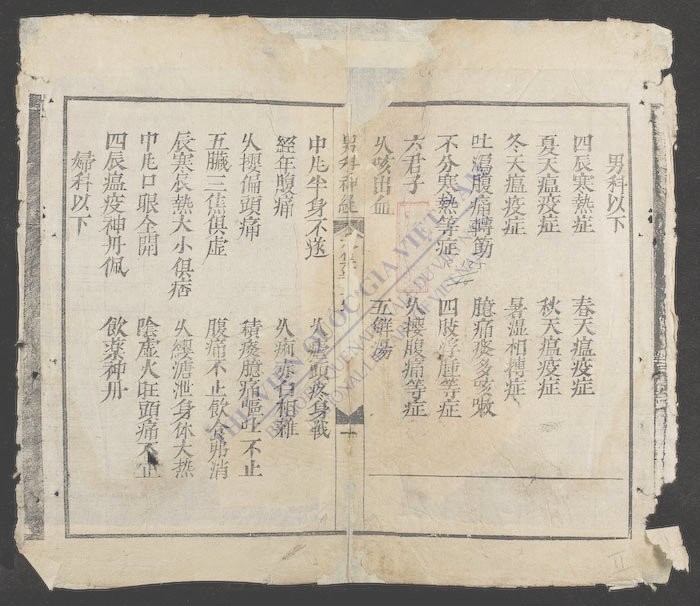 男科以下
四辰寒熱症　春天瘟疫症
夏天瘟疫症　秋天瘟疫症
冬天瘟疫症　暑湿相搏症
吐瀉腹痛轉筋　臆痛痰多咳嗽
不分寒熱等症　四肢浮腫等症
六君子　久摟腹痛等症
久咳出血　五鮮湯
男科神
中凡半身不遂　久虚頭疼身戰
經年腹痛　久痢赤白相雜
久摟偏頭痛　積痰臆痛嘔吐不止
五臟三焦俱虛　腹痛不止飲食消
辰寒辰熱大小俱痞　久緩溏泄身体大热
中凡口眼全開　陰虚火旺頭痛不止
四辰瘟疫神丹佩　飲薬神丹
婦科以下
THƯ VIỆN QUỐC GIA VIỆT NAM
NATIONAL LIBRARY OF VIETNAM